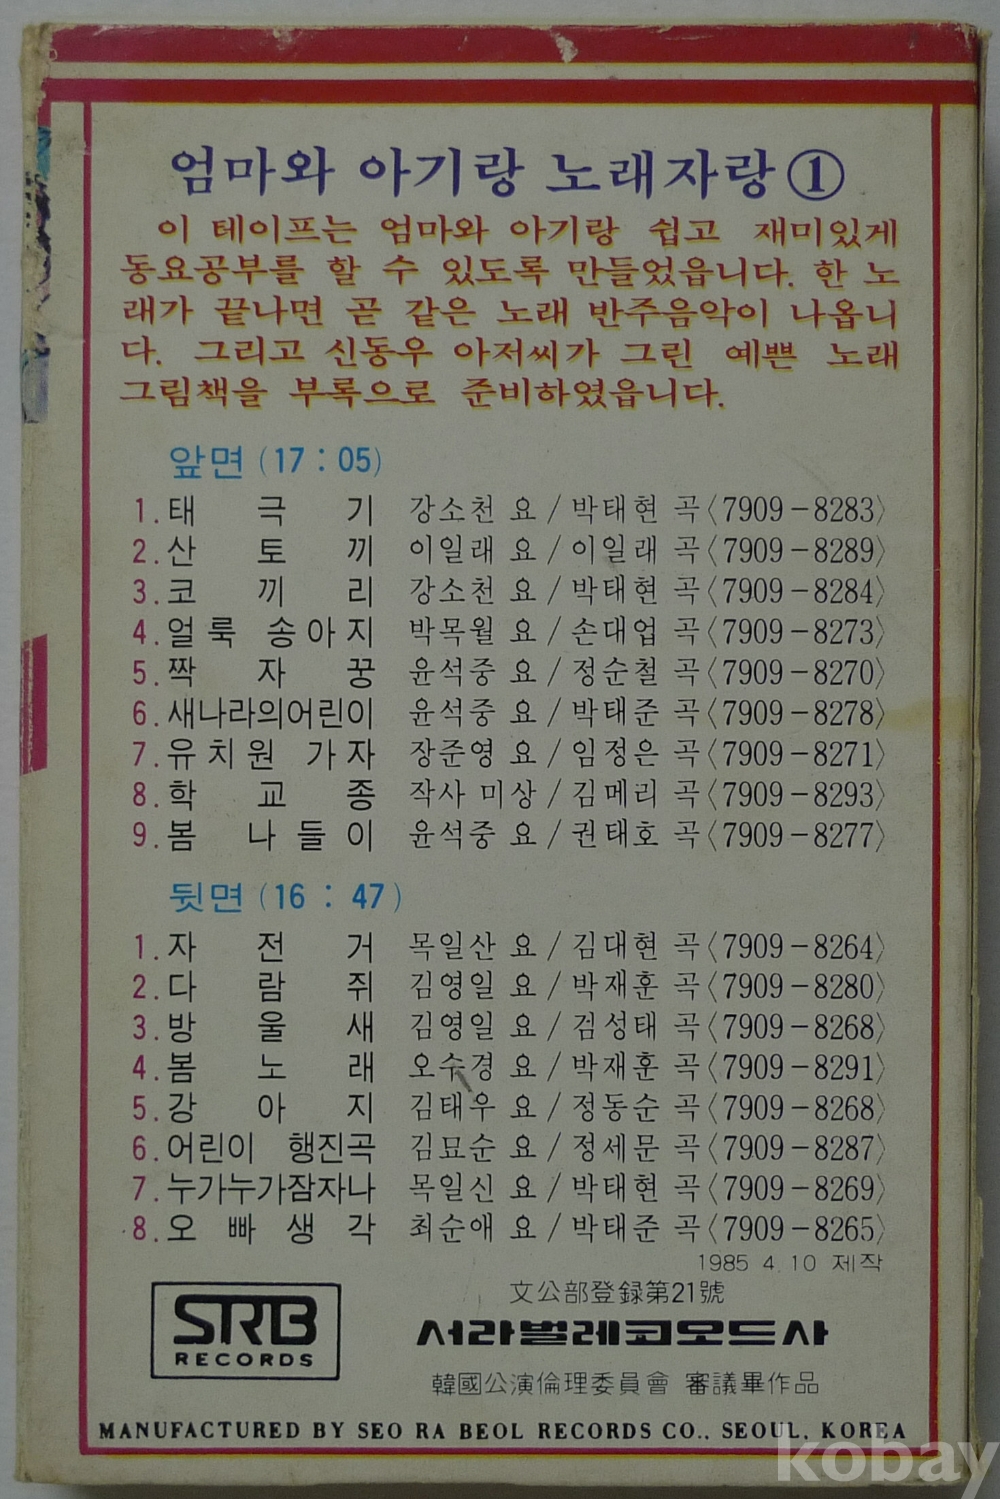 엄마와 아기랑 노래자랑①
이 테이프는 엄마와 아기랑 쉽고 재미있게
동요공부를 할 수 있도록 만들었읍니다. 한 노
래가 끝나면 곧 같은 노래 반주음악이 나옵니
다. 그리고 신동우 아저씨가 그린 예쁜 노래
그림책을 부록으로 준비하였읍니다.
앞면 (17 : 05)
1. 태극기 강소천 요 / 박태현 곡〈7909-8283〉
2. 산토끼 이일래 요 / 이일래 곡〈7909-8289〉
3. 코끼리 강소천 요 / 박태현 곡〈7909-8284〉
4. 얼룩 송아지 박목월 요 / 손대업 곡〈7909-8273〉
5. 짝자꿍 윤석중 요 / 정순철 곡〈7909-8270〉
6. 새나라의어린이 윤석중 요 / 박태준 곡〈7909-8278〉
7. 유치원 가자 장준영 요 / 임정은 곡〈7909-8271〉
8. 학교종 작사 미상 / 김메리 곡〈7909-8293〉
9. 봄 나들이 윤석중 요 / 권태호 곡〈7909-8277〉
뒷면 (16 : 47)
1. 자전거 목일산 요 / 김대현 곡〈7909-8264〉
2. 다람쥐 김영일 요 / 박재훈 곡〈7909-8280〉
3. 방울새 김영일 요 / 김성태 곡〈7909-8268〉
4. 봄노래 오수경 요 / 박재훈 곡〈7909-8291〉
5. 강아지 김태우 요 / 정동순 곡〈7909-8268〉
6. 어린이 행진곡 김묘순 요 / 정세문 곡〈7909-8287〉
7. 누가누가잠자나 목일신 요 / 박태현 곡〈7909-8269〉
8. 오빠생각 최순애 요 / 박태준 곡〈7909-8265〉
1985 4. 10 제작
文公部登録第21號
SRB
RECORDS
서라벌레코오드사
韓國公演倫理委員會 審議畢作品
MANUFACTURED BY SEO RA BEOL RECORDS CO., SEOUL, KOREA
kobay